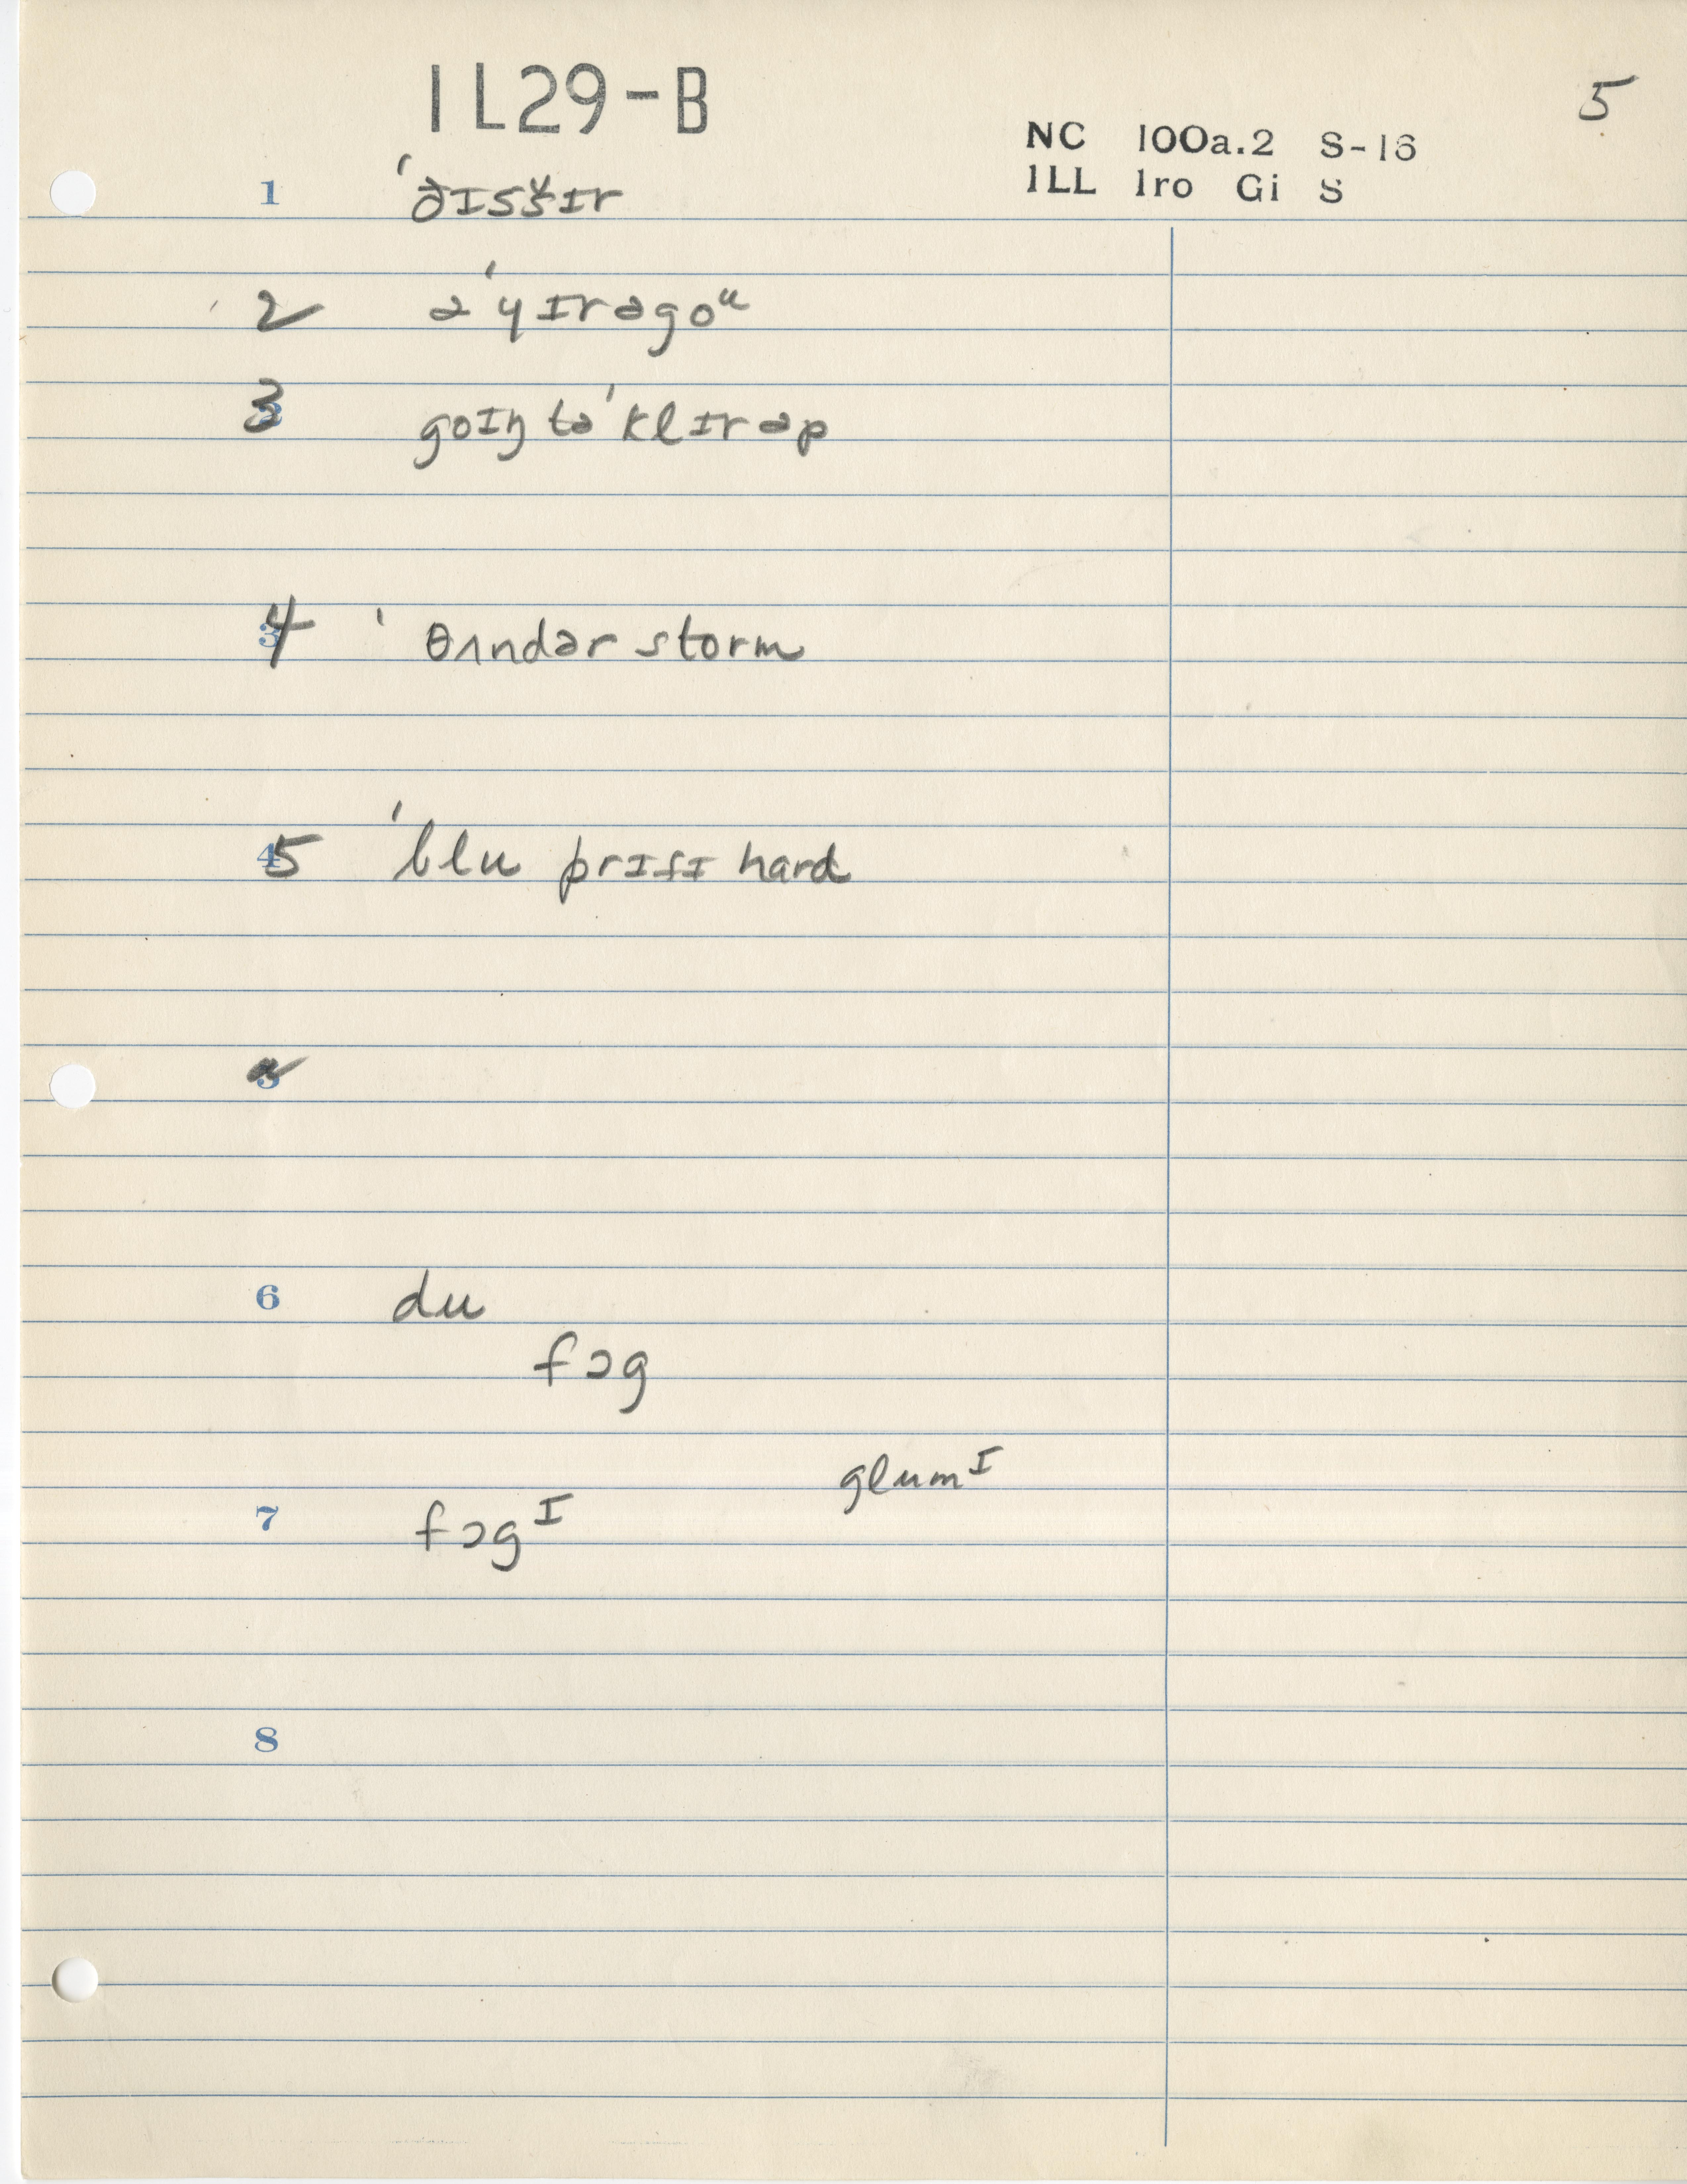 1L29-B
5
NC 100a.2 S-16
1LL 1ro Gi S
1 ˈðɪsǯɪr
2 əˈyɪrəgoᵘ
3 goɪŋ təˈklɪrəp
4 ˈθʌndər storm
5 ˈblu prɪtɪ hard
5
6 du
fɔg
glumᴵ
7 fɔgᴵ
8